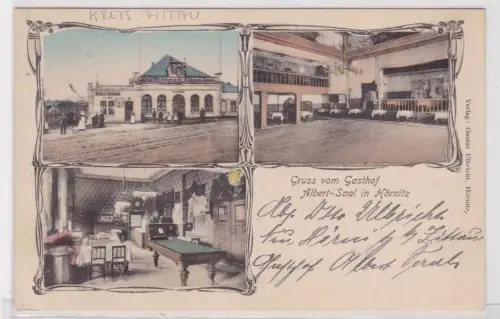 KREIS ZITTAU
Gruss vom Gasthof
Albert-Saal in Hörnitz
Verlag: Gustav Ulbricht, Hörnitz.
Otto Ulbricht
in Hörnitz b/ Zittau
Gasthof Albert Saal